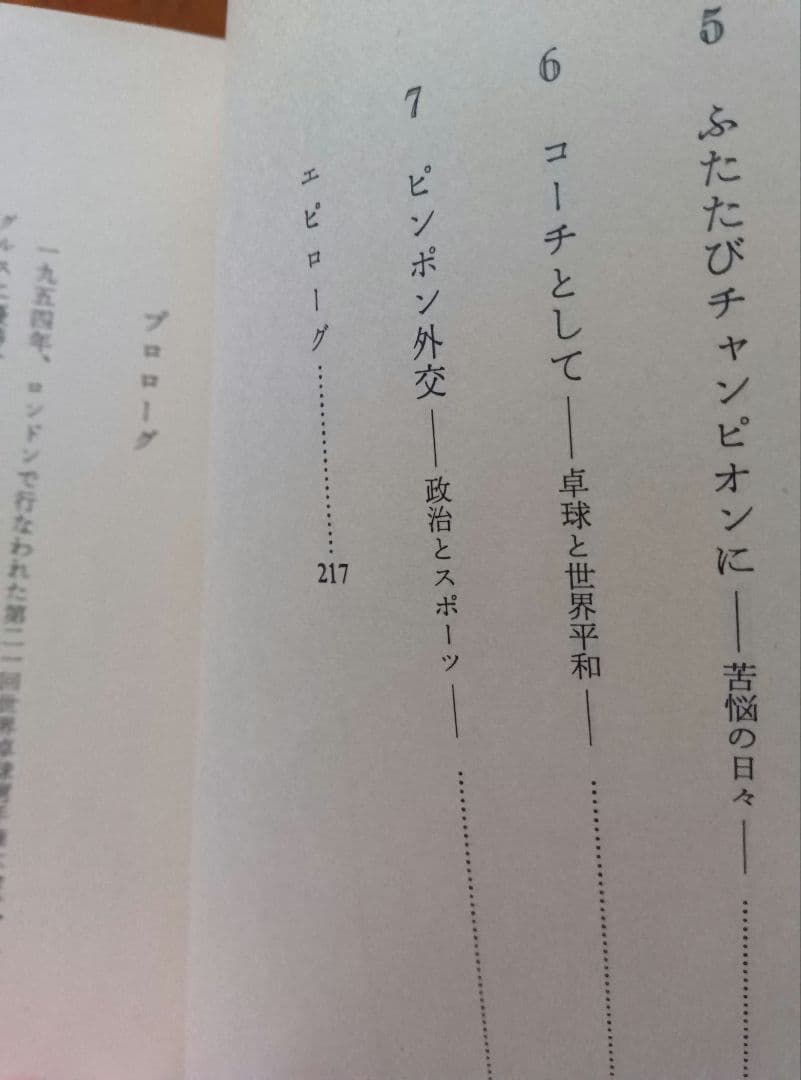 5 ふたたびチャンピオンに――苦悩の日々――
6 コーチとして――卓球と世界平和――
7 ピンポン外交――政治とスポーツ――
エピローグ……………………217
プロローグ
一九五四年、ロンドンで行なわれた第二一回世界卓球選手権